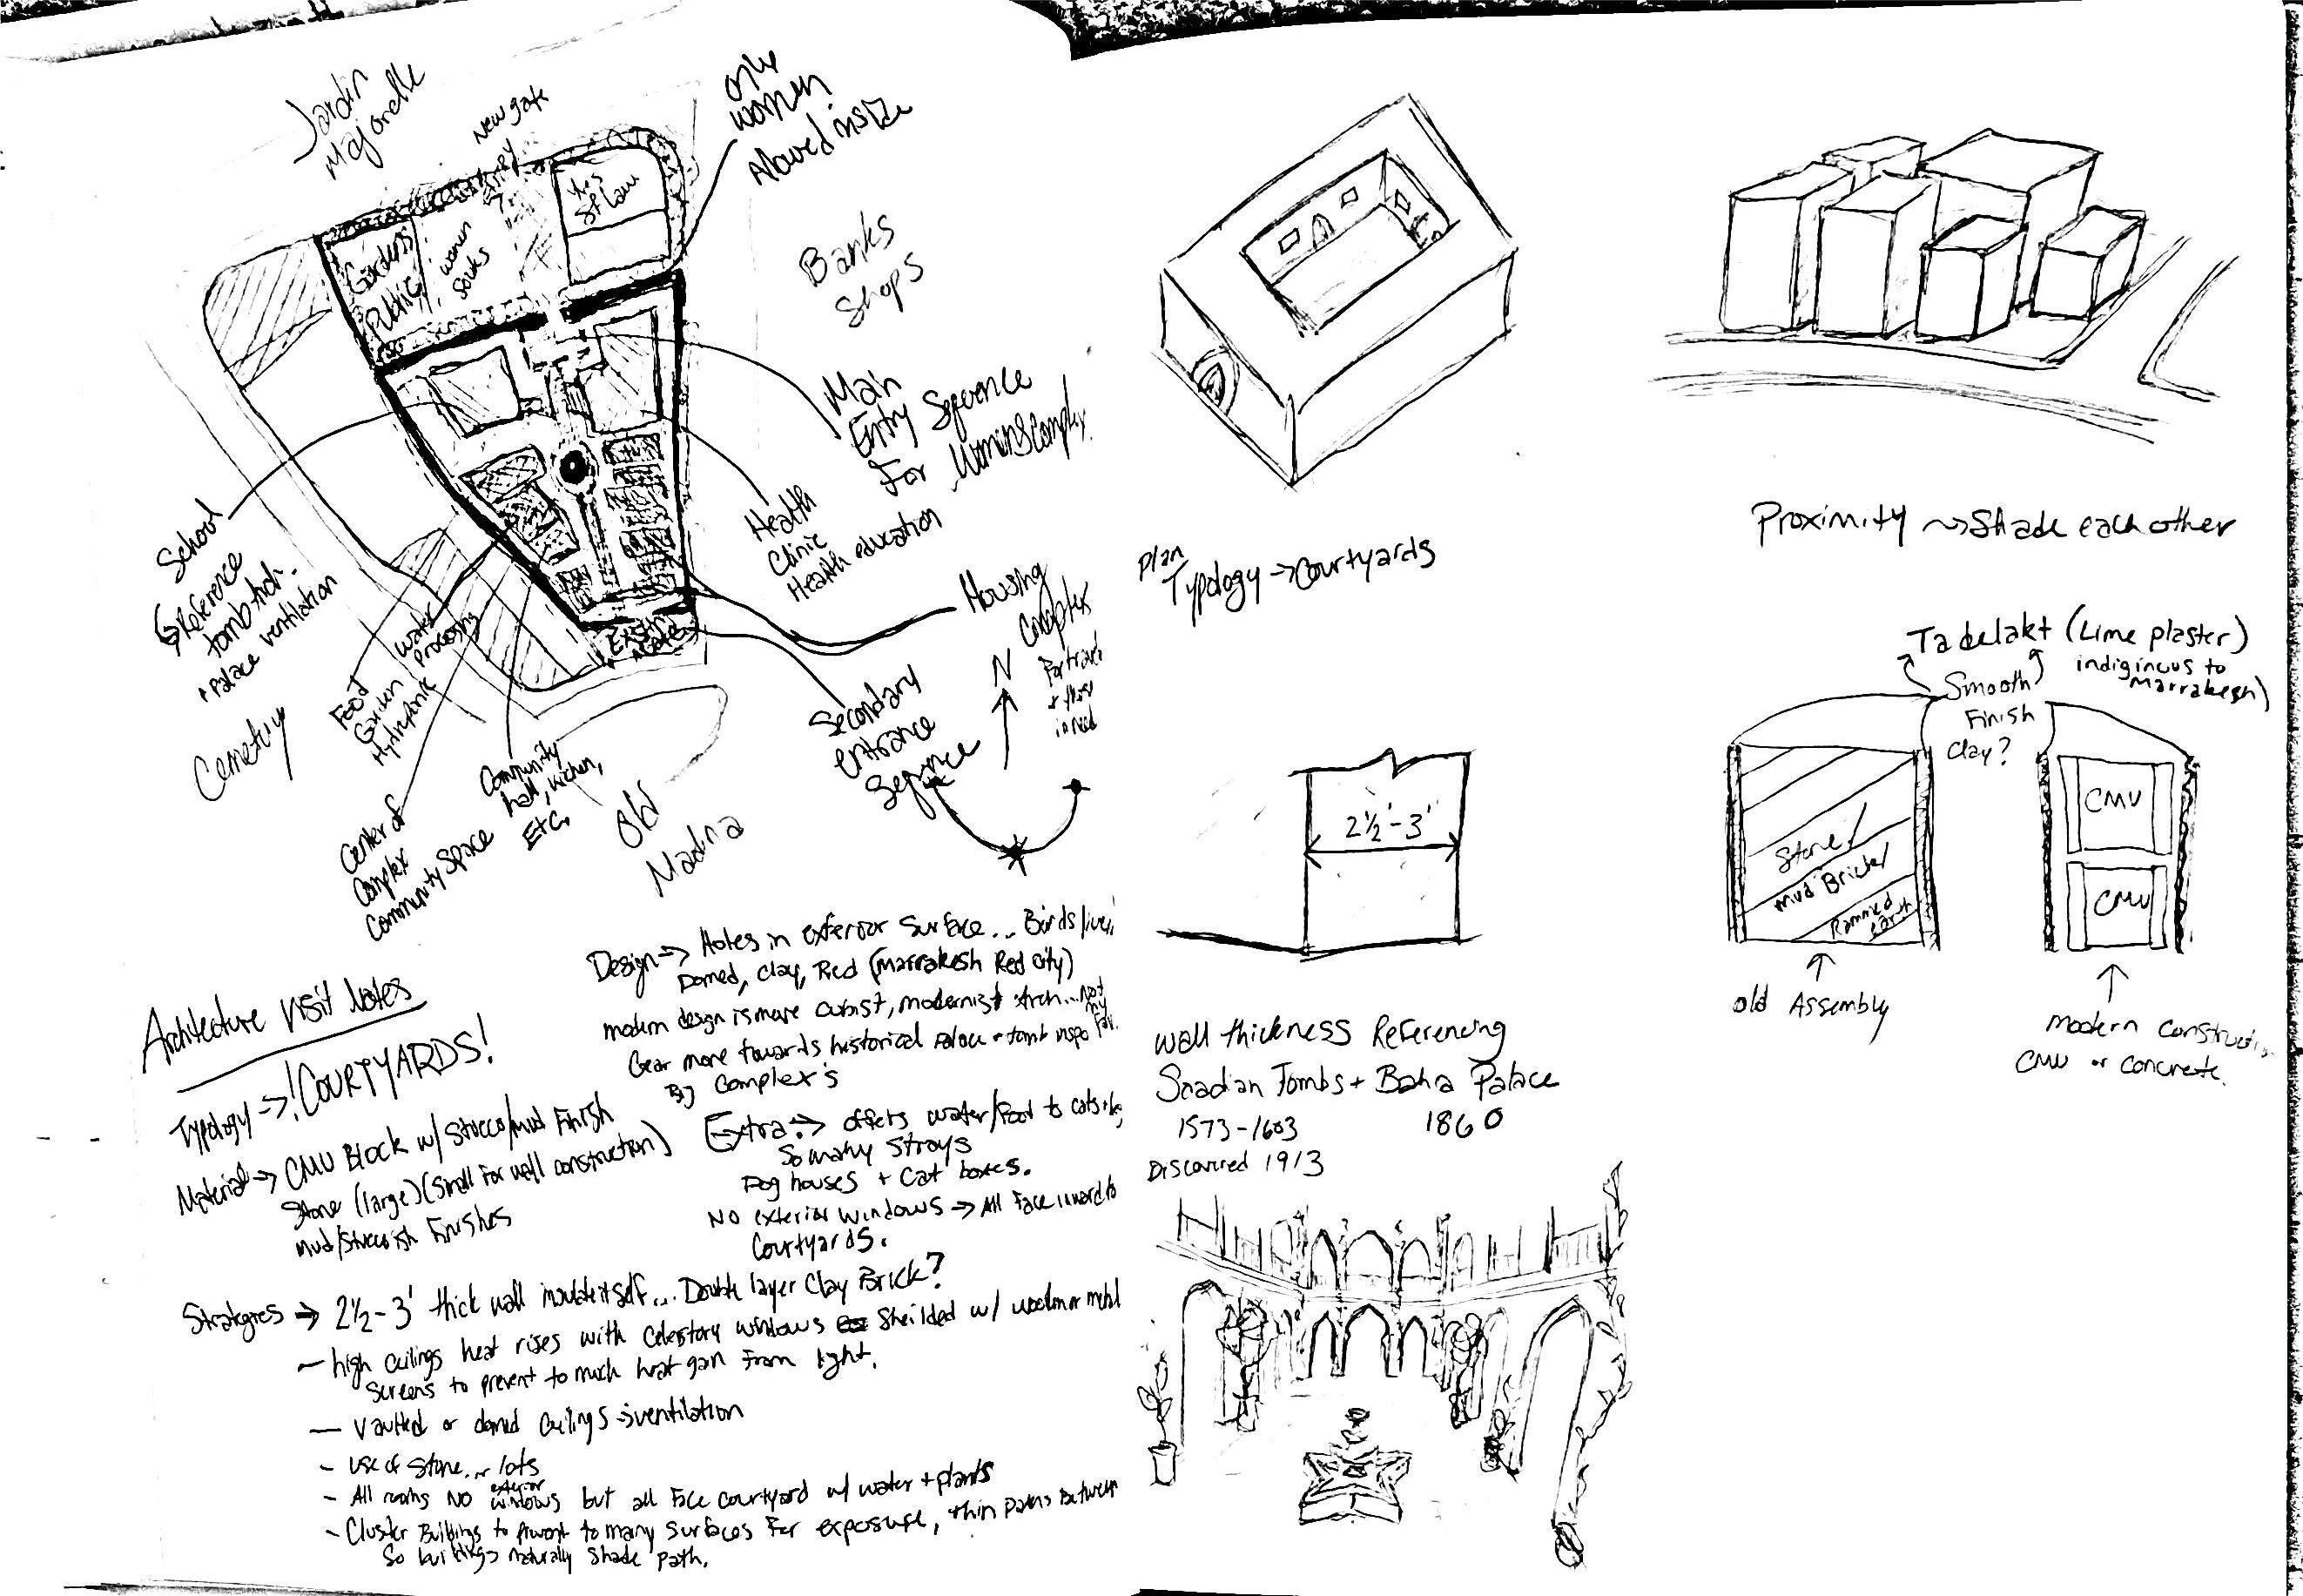 Jardin
Majorelle
New gate
Entry
only
women
Allowed inside
YVES
St Lau
Gardens
Public
women
Souks
Banks
Shops
Main
Entry Sequence
For Womens Complex
School
Reference
tomb Arch.
palace ventilation
Health
Clinic
Health education
Housing
Complex
For travel
+ those
in need
N
Existing
Secondary
entrance
Sequence
Cemetery
water
processing
Food
Garden
Hydroponic
Center of
Complex
Community Space
Community
hall, kitchen,
Etc.
Old
Madina
Architecture Visit Notes
Typology → !COURTYARDS!
Material → CMU Block w/ Stucco/mud Finish
Stone (large) (Small For wall construction)
mud/Stuccoish Finishes
Design → Holes in exterior Surface... Birds live.
Domed, Clay, Red (Marrakesh Red City)
modern design is more cubist, modernist Arch... Not my Fav.
Gear more towards historical Palace + tomb inspo
Big Complex's
Extra: → offers water/Food to cats +
So many Strays
Dog houses + Cat boxes.
NO exterior windows → All Face inward to
Courtyards.
Strategies → 2½-3' thick wall itself... Double layer Clay Brick?
- high ceilings heat rises with Celestory windows Sheilded w/ wooden or metal
Screens to prevent to much heat gain From light.
- Vaulted or domed Ceilings → ventilation
- Use of Stone... lots
- All rooms NO exterior windows but all Face courtyard w/ water + plants
- Cluster Buildings to prevent to many Surfaces For exposure, thin paths Between
So buildings naturally Shade path.
Plan
Typology → Courtyards
Proximity → Shade each other
2½-3'
Wall thickness Referencing
Saadian Tombs + Bahia Palace
1573-1603 1860
Discovered 1913
Tadelakt (Lime plaster)
indiginous to
Marrakesh)
Smooth
Finish
Clay?
Stone/
Mud Bricks/
Rammed
earth
CMU
CMU
old Assembly
Modern Construction
CMU or Concrete.